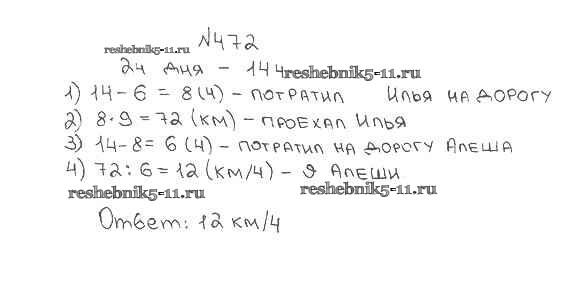 №472
reshebnik5-11.ru
2ч дня - 14ч
reshebnik5-11.ru
1) 14-6 = 8(ч) - потратил Илья на дорогу
2) 8·9=72(км) - проехал Илья
3) 14-8= 6(ч) - потратил на дорогу Алеша
4) 72:6=12(км/ч) - υ Алеши
reshebnik5-11.ru reshebnik5-11.ru
Ответ: 12 км/ч